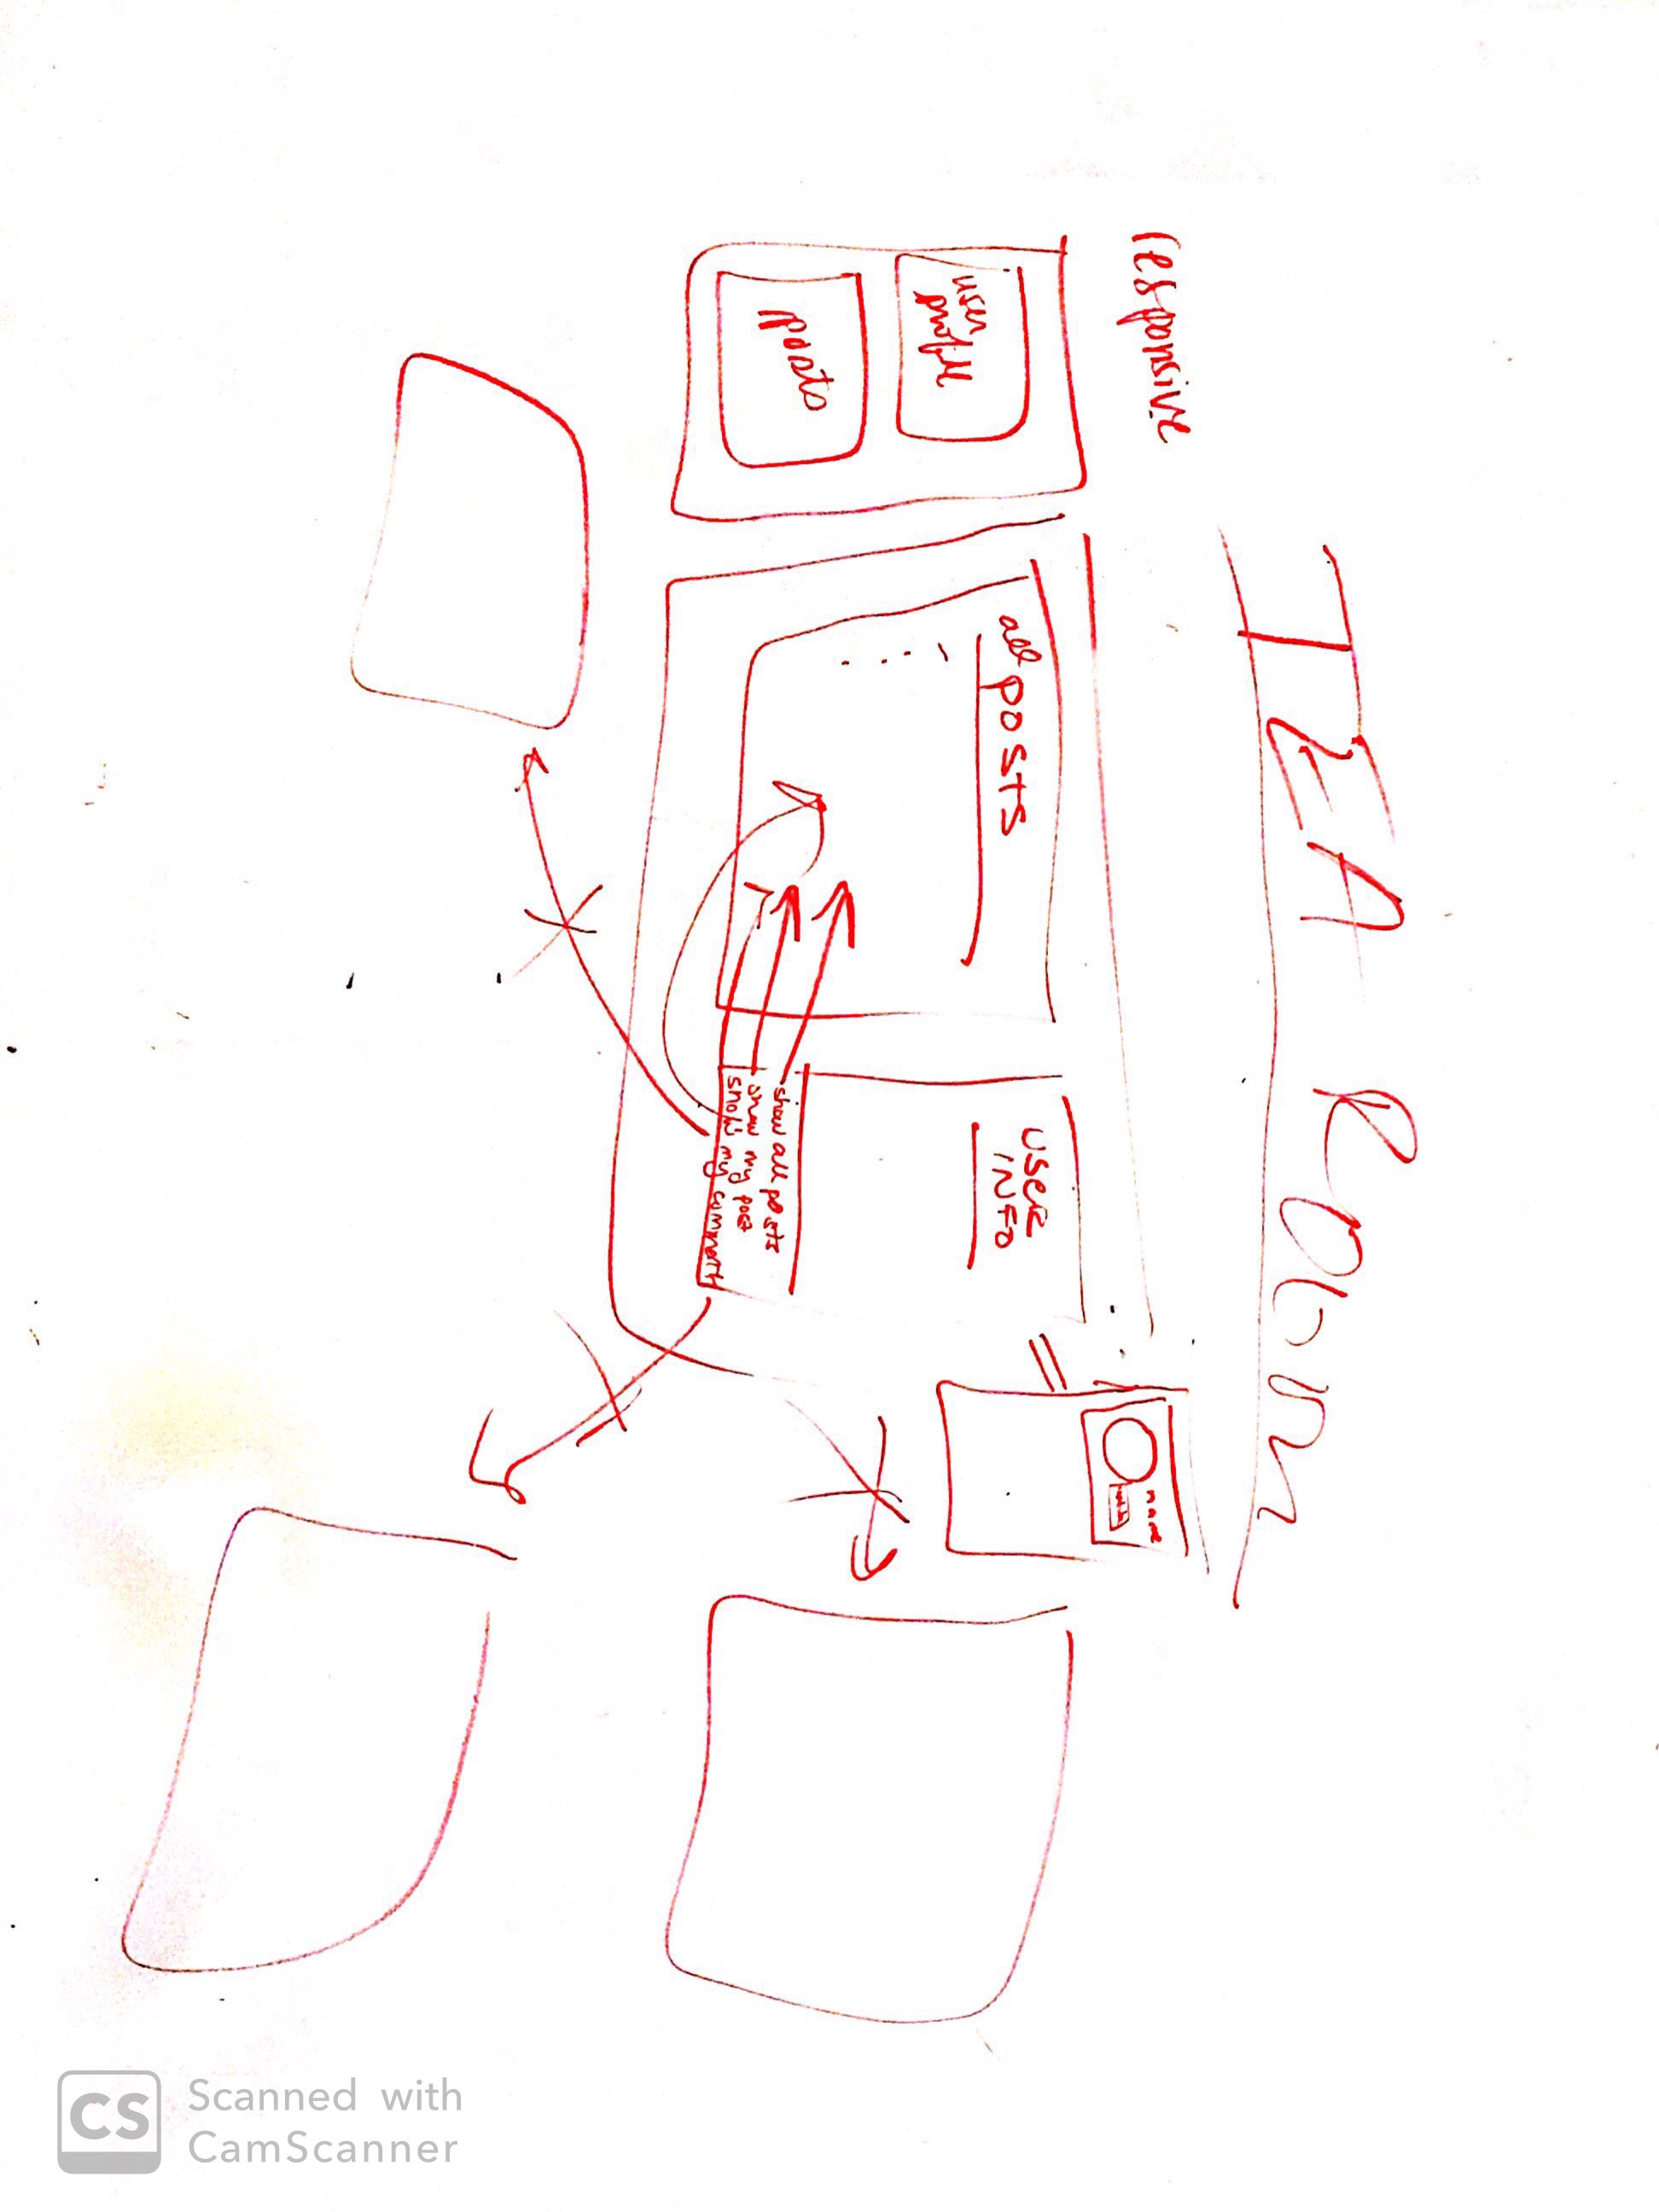 TEA ROOM
responsive
user
profile
posts
all posts
USER
INFO
show all posts
show my post
show my comments
name
CS
Scanned with
CamScanner